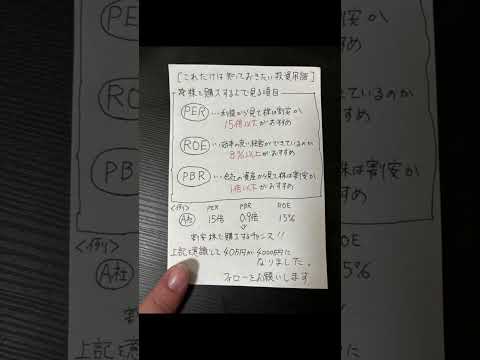 [これだけは知っておきたい投資用語]
株を購入する上で見る項目
PER …利益から見て株は割安か
15倍以下がおすすめ
ROE …効率の良い経営ができているのか
8%以上がおすすめ
PBR …会社の資産から見て株は割安か
1倍以下がおすすめ
<例> PER PBR ROE
A社 15倍 0.9倍 15%
割安株で購入するチャンス!!
上記を意識して40万円が4000万円に
なりました。
フォローをお願いします